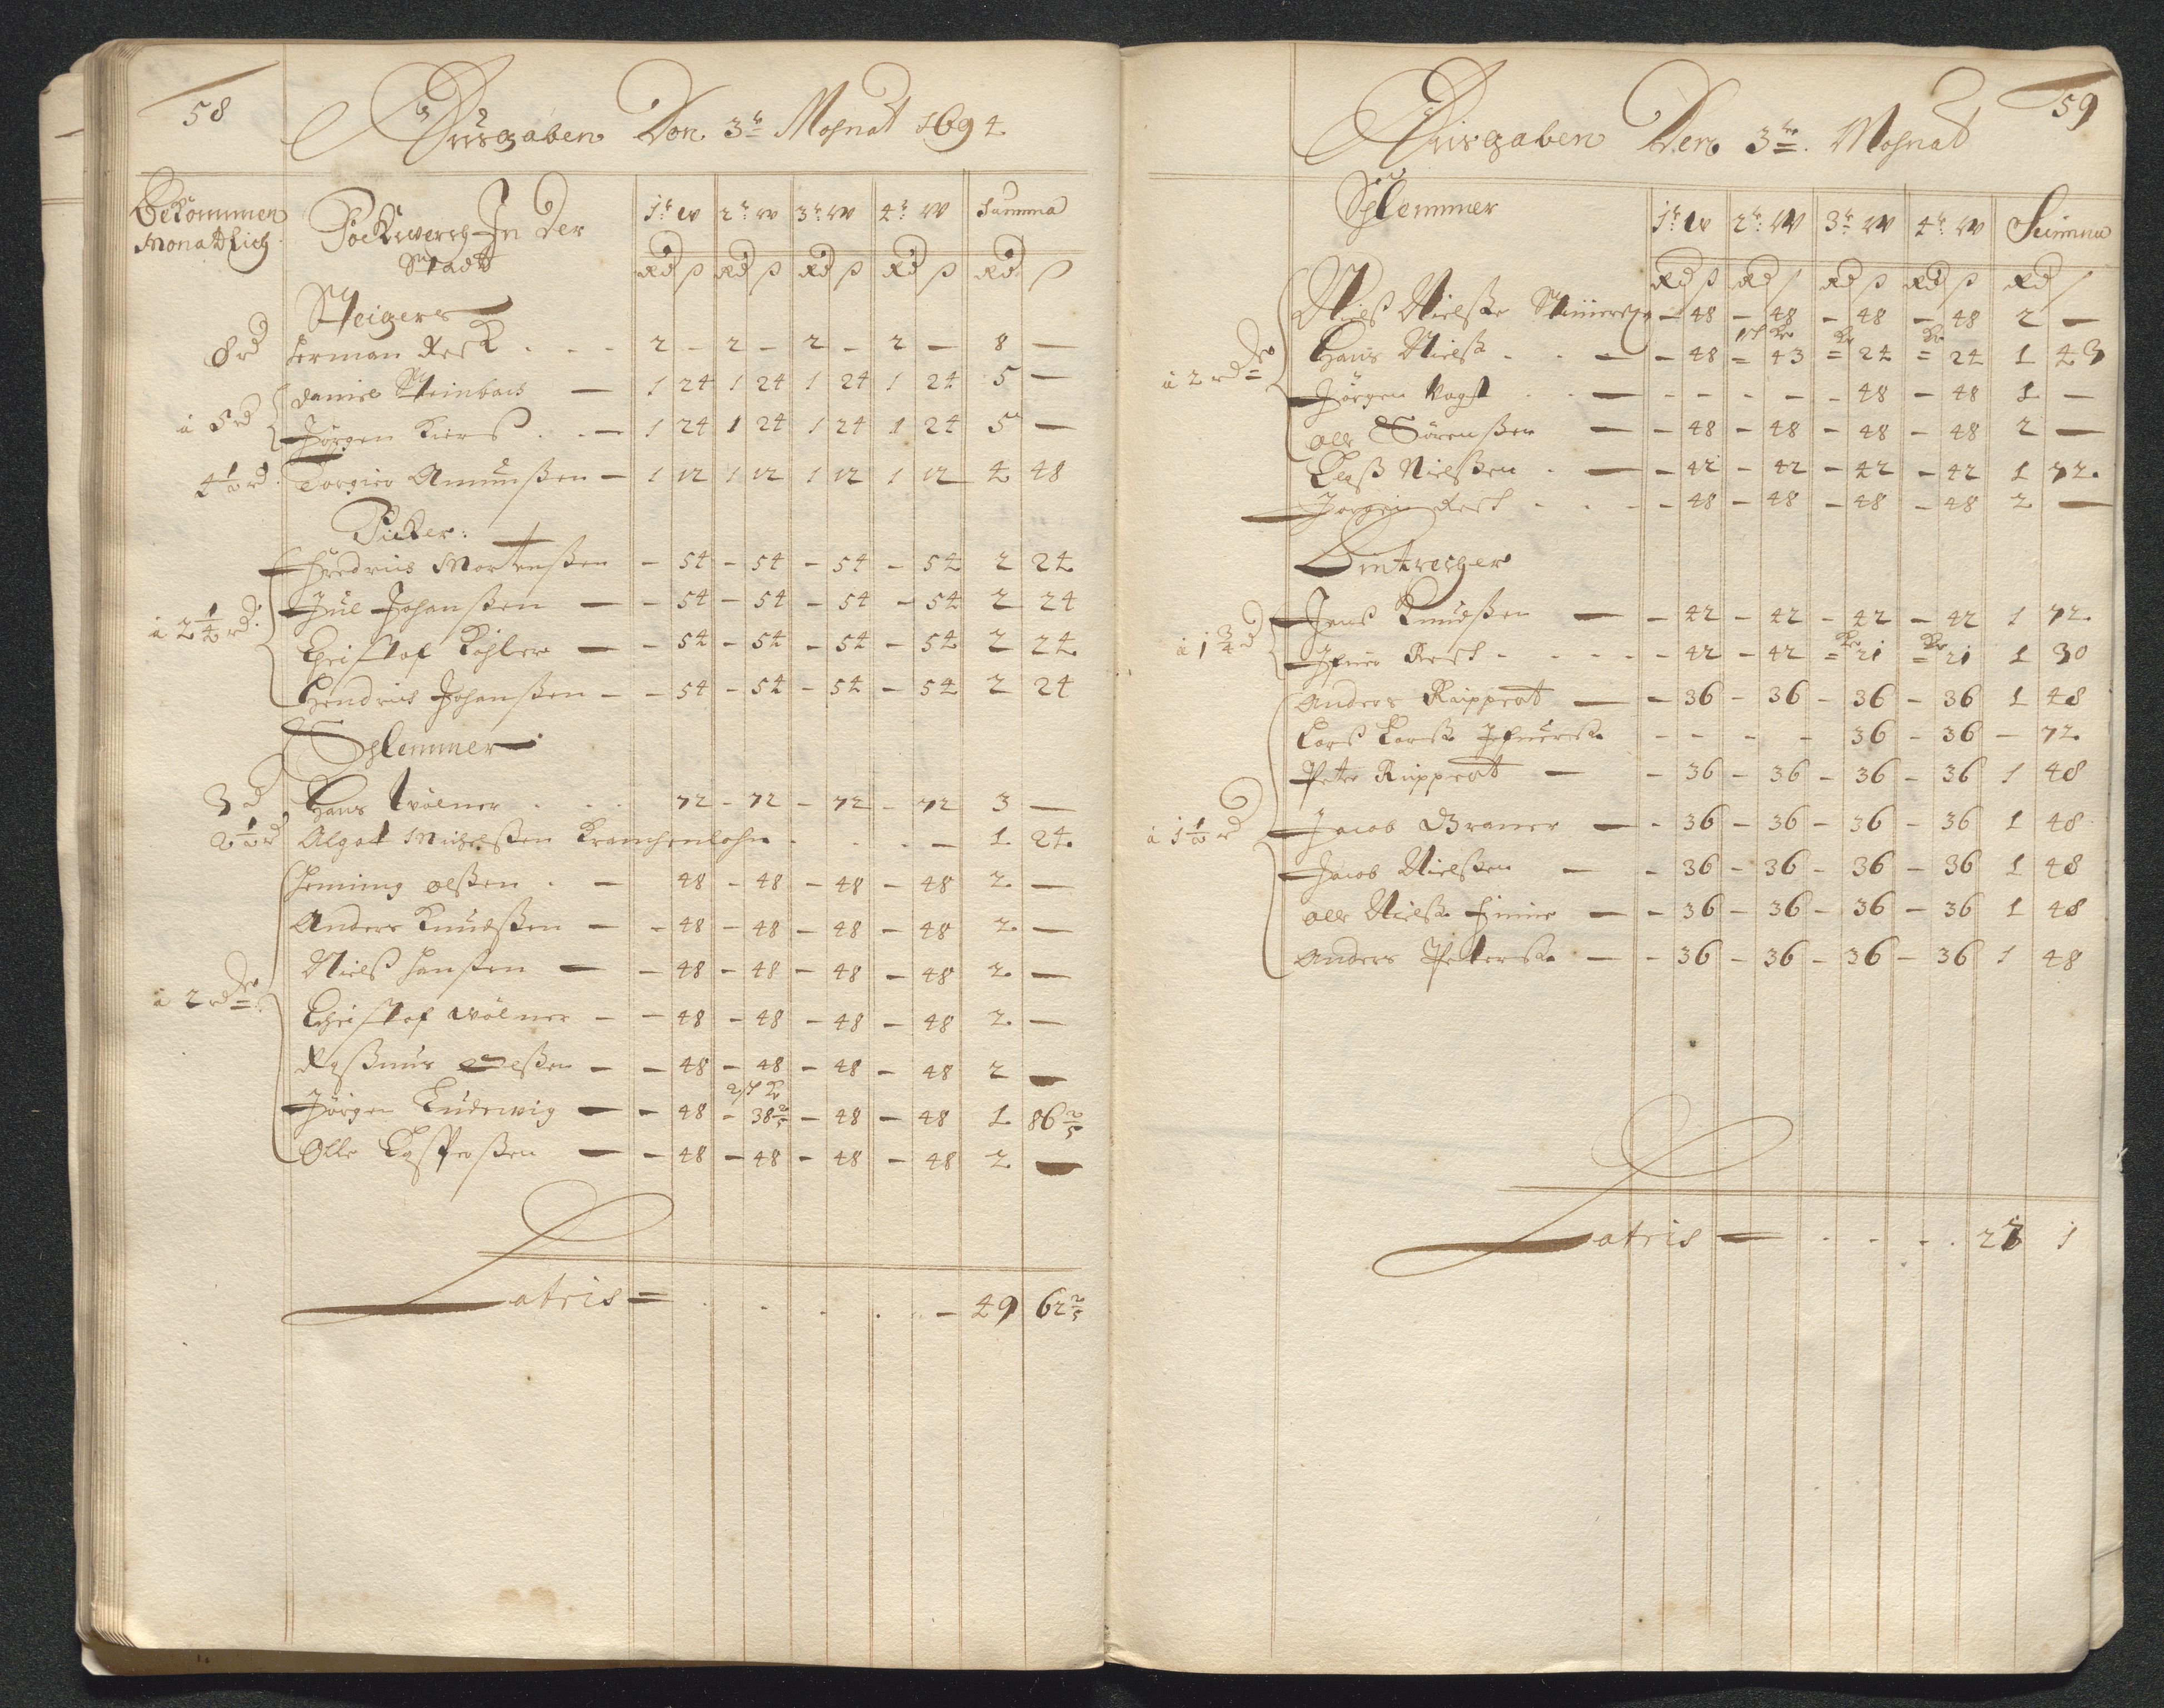 58
Ausgaben Den 3te Mohnat 1694
Bekommen Monatlich
Pockwerch In Der Stadt
1te W 2te W 3te W 4te W Summa
Rd ß Rd ß Rd ß Rd ß Rd ß
Steigers
8 rd Herman Resk . . - 2 - 2 - 2 - 2 - 8 -
à 5 rd Daniel Steinbach - 1 24 1 24 1 24 1 24 5 -
Jörgen Kierß . . - 1 24 1 24 1 24 1 24 5 -
4 1/2 rd. Torgier Amunßen - 1 12 1 12 1 12 1 12 4 48
Picker:
à 2 1/4 rd: Fredrius Mortenßen - 54 - 54 - 54 - 54 2 24
Jul Johanßen - - 54 - 54 - 54 - 54 2 24
Christof Köhler - - 54 - 54 - 54 - 54 2 24
Hendrius Johanßen - - 54 - 54 - 54 - 54 2 24
Schlemmer:
3 d Hans Wölner . . . 72 - 72 - 72 - 72 3 -
2 1/2 rd Algot Michelßen Kranchenlohn . . . - 1 24
à 2 rd Heming Olßen . - 48 - 48 - 48 - 48 2 -
Anders Knudßen - - 48 - 48 - 48 - 48 2 -
Nielß Hanßen - - 48 - 48 - 48 - 48 2 -
Christof Wölner - - 48 - 48 - 48 - 48 2 -
Raßmus Olßen - - 48 - 48 - 48 - 48 2 -
Jörgen Ludewig - - 48 - 38 2/5 - 48 - 48 1 86 2/5
Olle Casperßen - - 48 - 48 - 48 - 48 2 -
Latris = . . . . - 49 62 2/5
59
Ausgaben Den 3te. Mohnat
Schlemmer
1te W 2te W 3te W 4te W Summa
Rd ß Rd ß Rd ß Rd ß Rd ß
à 2 rd Nielß Nielße - 48 - 48 - 48 - 48 2 -
Hans Nielß . . - - 48 = 43 = 24 = 24 1 43
Jörgen Vogt . . - - - - - - 48 - 48 1 -
Olle Sörenßen - - 48 - 48 - 48 - 48 2 -
Claß Nielßen . - - 42 - 42 - 42 - 42 1 72.
Jörgen Resk . . - - 48 - 48 - 48 - 48 2 -
à 1 3/4 d Jenß Knudßen - - 42 - 42 - 42 - 42 1 72.
Resk - . . - - 42 - 42 = 21 = 21 1 30
à 1 1/2 rd Anders Rupprat - - 36 - 36 - 36 - 36 1 48
Larß Larß - - - - 36 - 36 - 72.
Peter Rupprat - - 36 - 36 - 36 - 36 1 48
Jacob Braner - - 36 - 36 - 36 - 36 1 48
Jacob Nielßen - - 36 - 36 - 36 - 36 1 48
Olle Nielß - - 36 - 36 - 36 - 36 1 48
Anders Peterß - - 36 - 36 - 36 - 36 1 48
Latris = . . . . 1